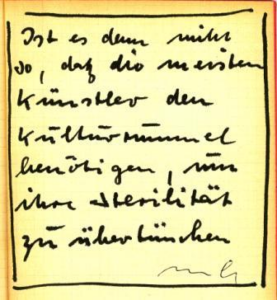 Ist es denn nicht
so, daß die meisten
Künstler den
Kulturrummel
benötigen, um
ihre Sterilität
zu übertünchen